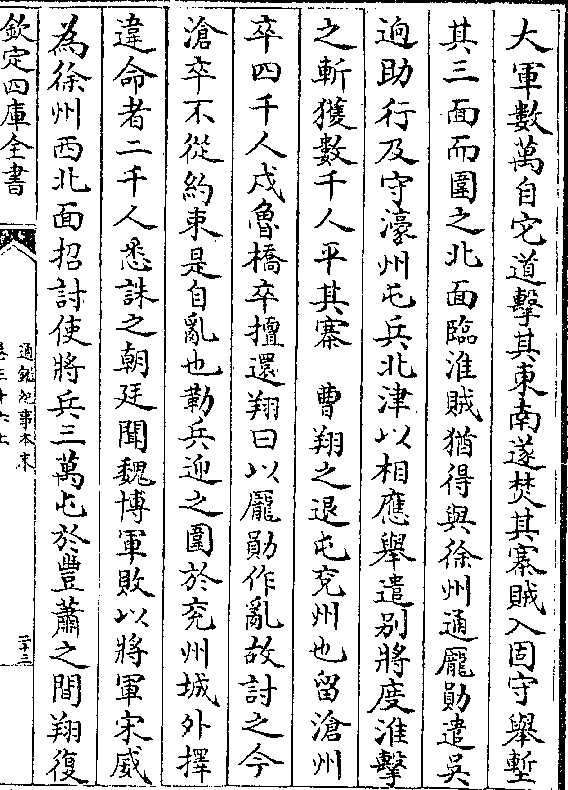 大軍數萬自它道擊其東南遂焚其寨賊入固守舉塹
其三面而圍之北面臨淮賊猶得與徐州通龐勛遣吳
逈助行及守濠州屯兵北津以相應舉遣别將度淮擊
之斬獲數千人平其寨　曹翔之退屯兖州也留滄州
卒四千人戍魯橋卒擅還翔曰以龐勛作亂故討之今
滄卒不從約束是自亂也勒兵迎之圍於兖州城外擇
違命者二千人悉誅之朝廷聞魏博軍敗以將軍宋威
為徐州西北面招討使將兵三萬屯於豐蕭之間翔復
欽定四庫全書
通鑑紀事本末
二十三